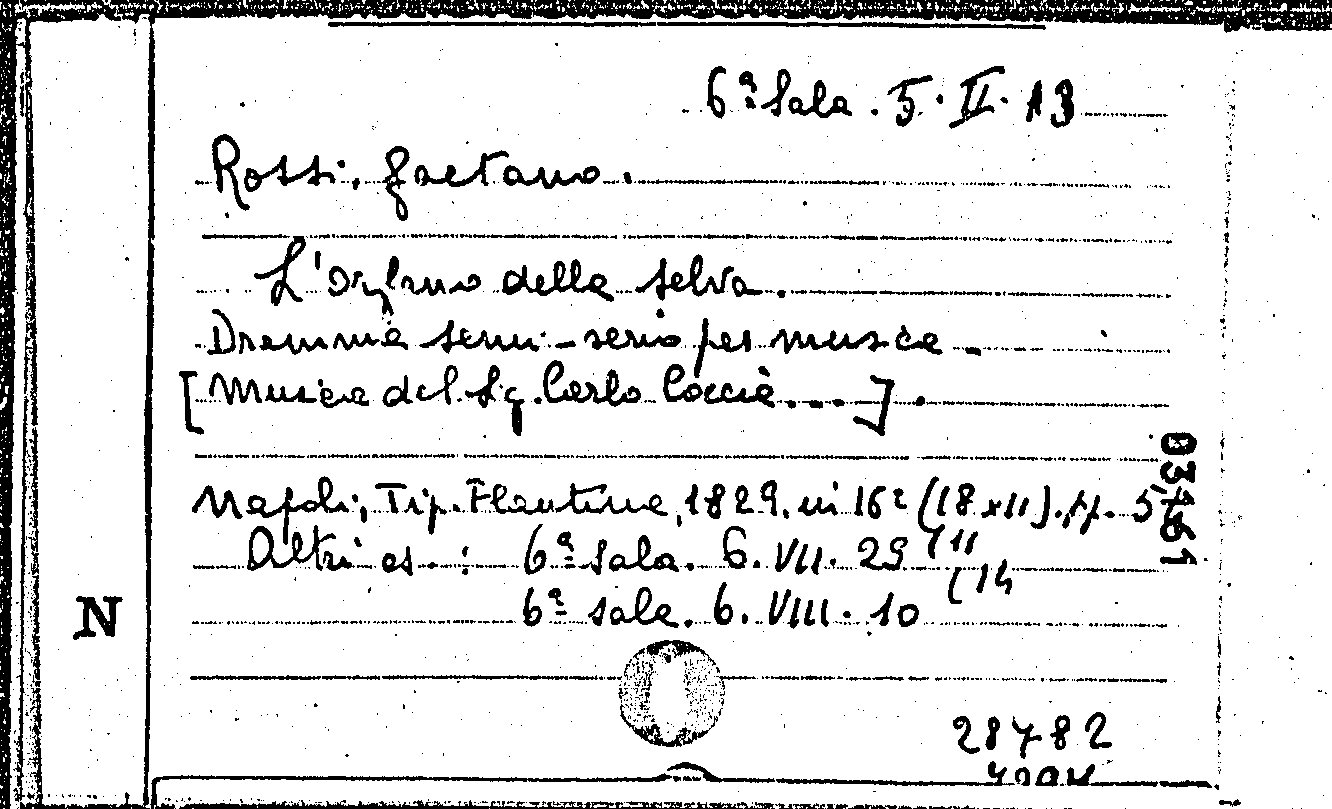 6ª Sala. 5. II. 13
Rossi, Gaetano.
L'orfano della selva.
Dramma semi-serio per musica.
[Musica del Sig. Carlo Coccia...].
Napoli, Tip. Flautina, 1829, in 16º (18x11). pp.
Altri es.: 6ª sala. 6. VII. 29 (11
(14
6ª sala. 6. VIII. 10
N
28782